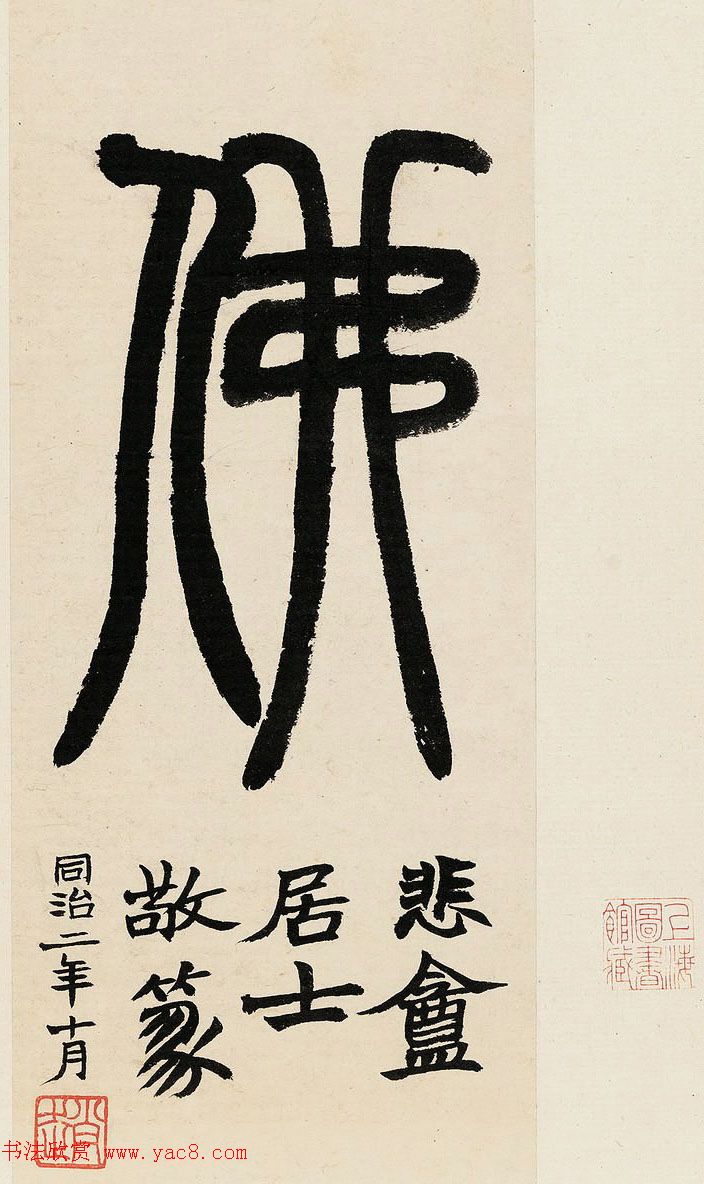 佛
悲盦
居士
敬篆
同治二年十月
趙
上海
圖書
館藏
书法欣赏 www.yac8.com